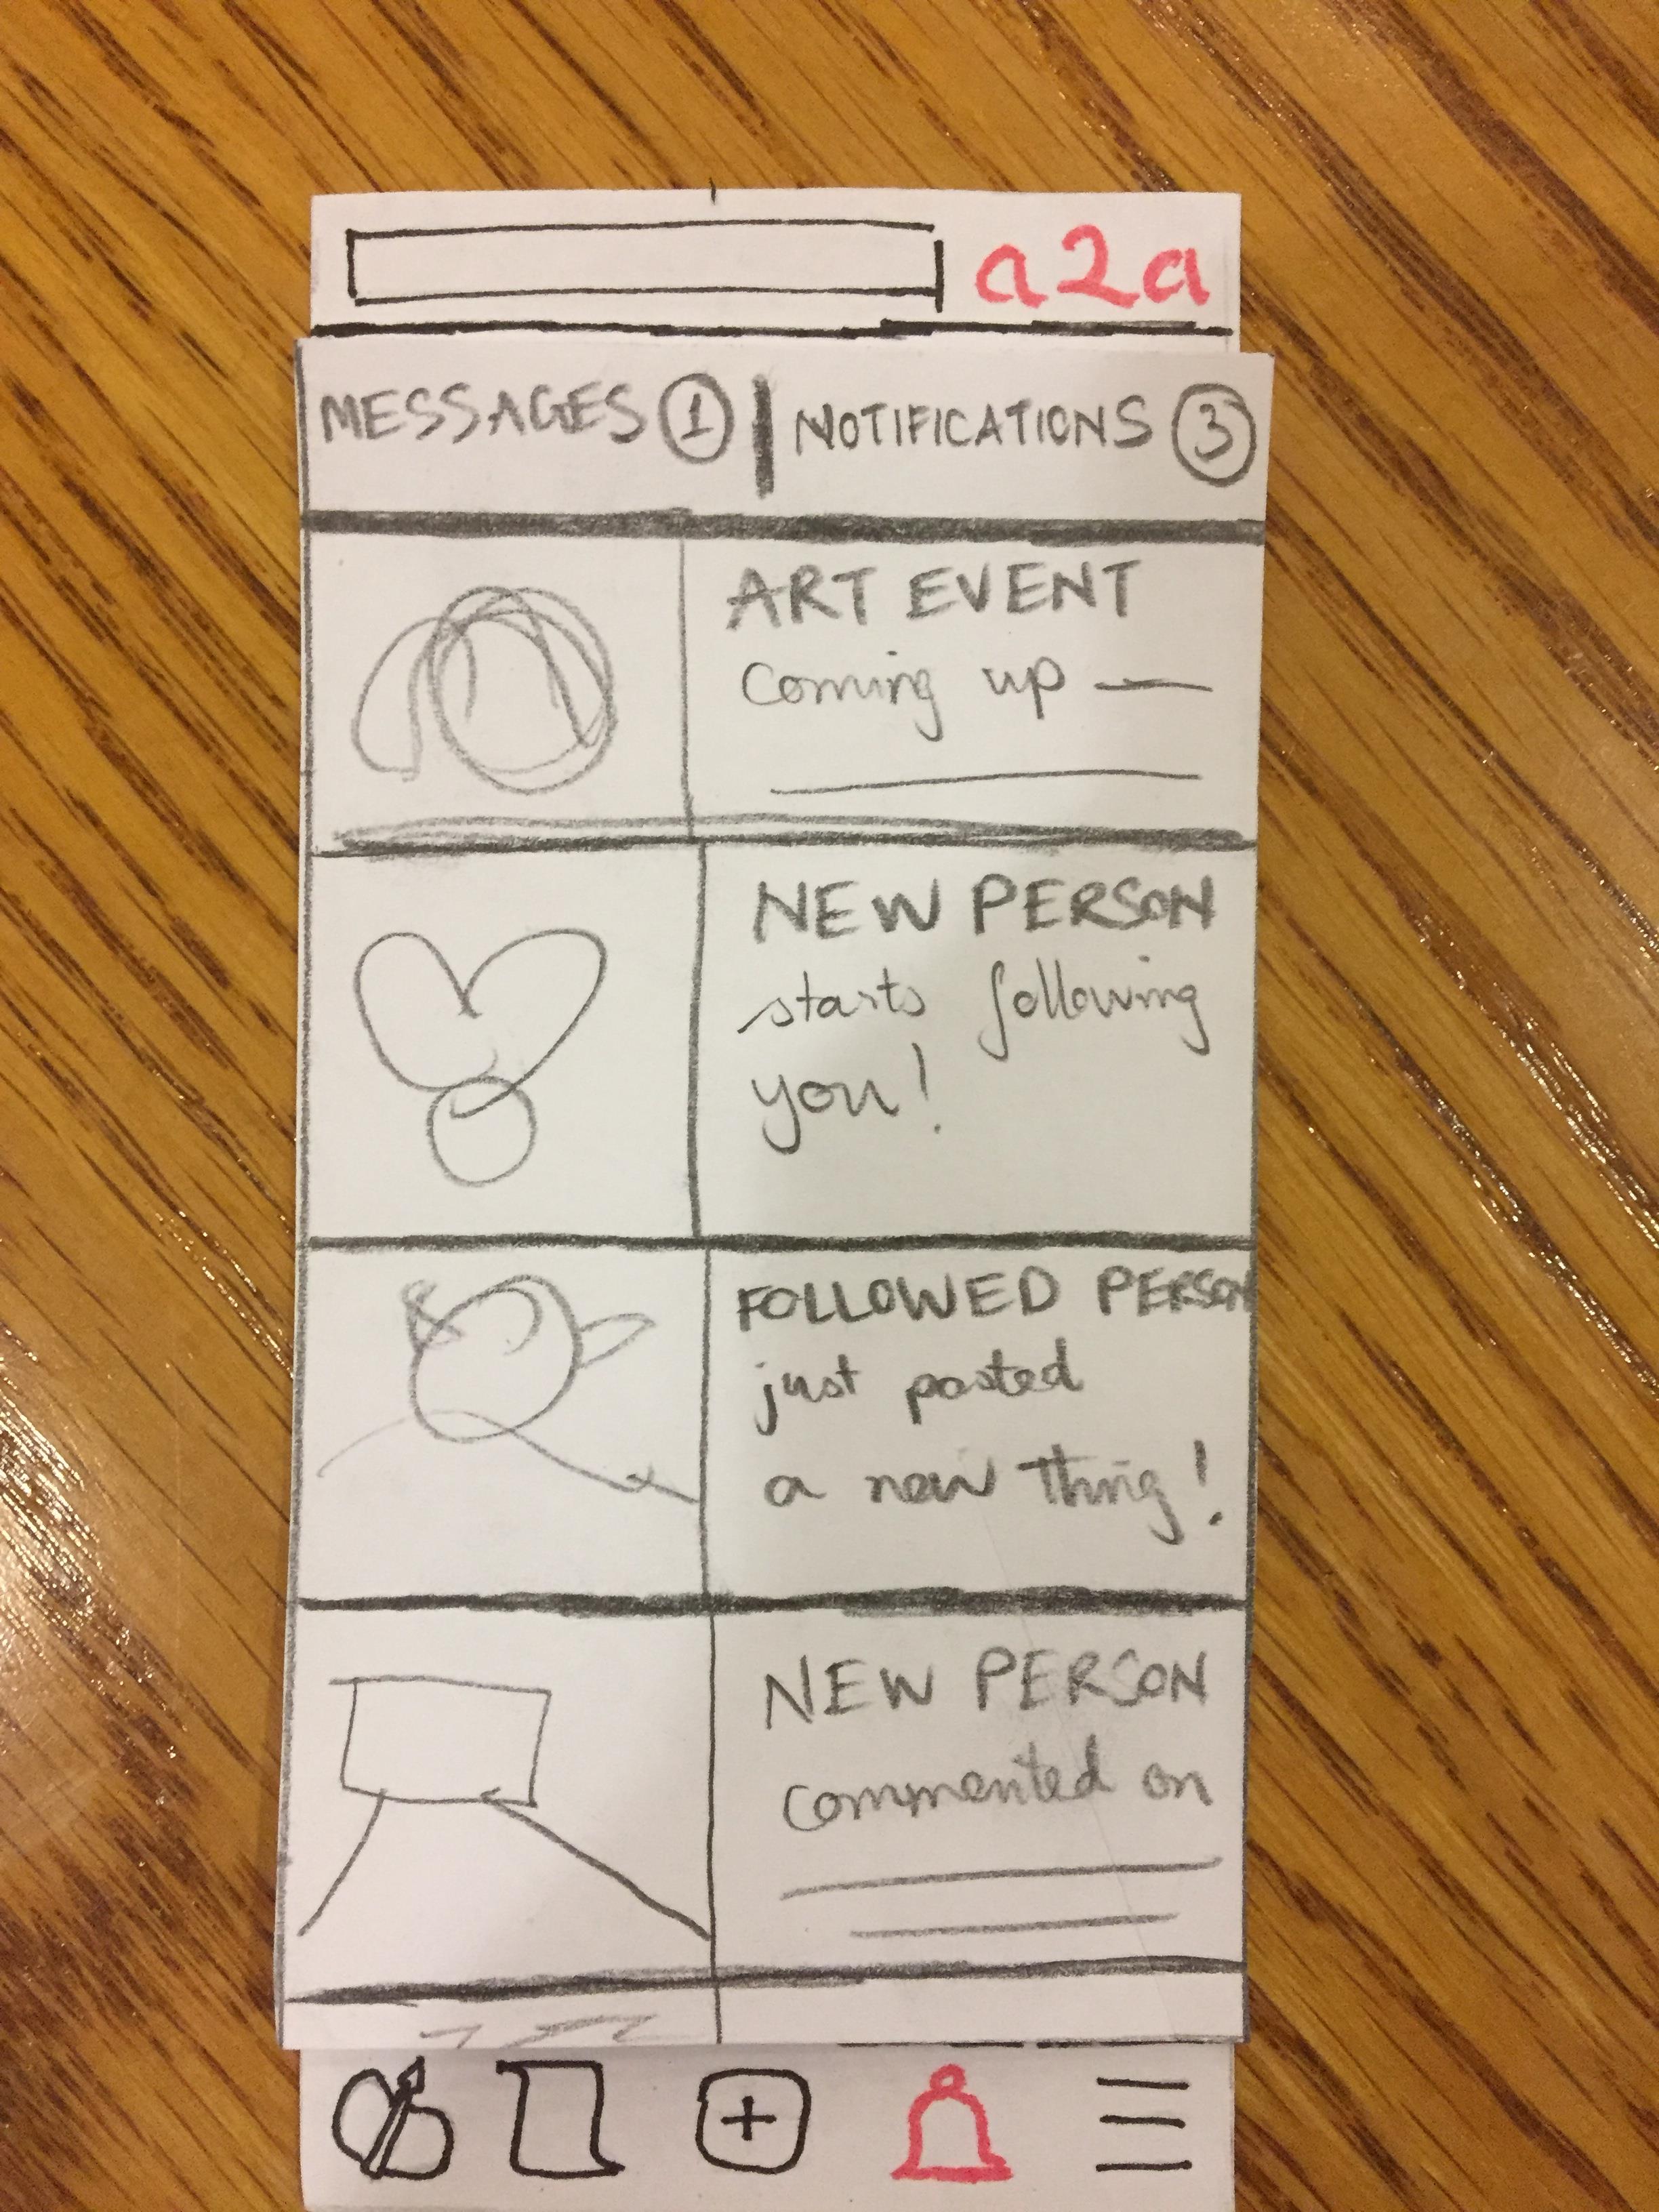 a2a
MESSAGES 1 | NOTIFICATIONS 3
ART EVENT
coming up —
NEW PERSON
starts following
you!
FOLLOWED PERSON
just posted
a new thing!
NEW PERSON
commented on